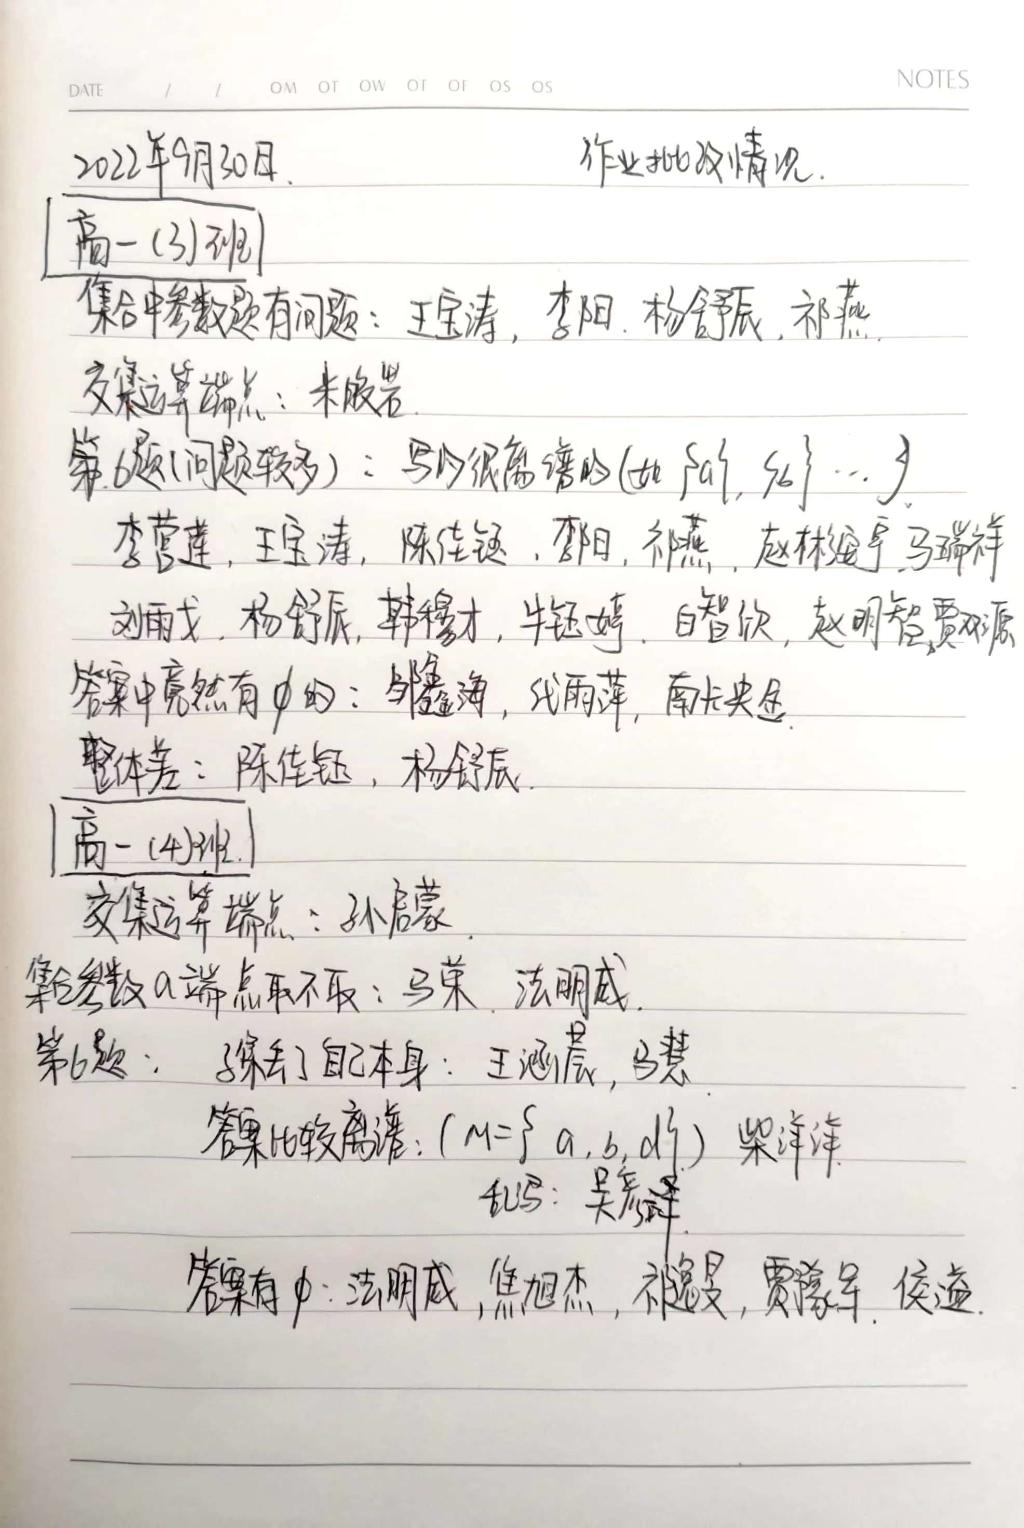 DATE / / OM OT OW OT OF OS OS NOTES
2022年9月30日. 作业批改情况.
高一(3)班
集合中参数题有问题: 王宝涛, 李阳. 杨舒辰, 祁燕.
交集运算端点: 米般若.
第6题(问题较多): 写的很离谱的(如{a}, {b}...)
李营莲, 王宝涛, 陈佳钰, 李阳, 祁燕, 赵林 马瑞祥
刘雨戈, 杨舒辰, 韩穆才, 牛钰婷. 白智欣, 赵明智, 贾双源
答案中竟然有φ的: 邹鑫海, 代雨萍, 南卡央金.
整体差: 陈佳钰, 杨舒辰.
高一(4)班.
交集运算端点: 孙启蒙.
集合参数a端点取不取: 马荣. 法明威.
第6题: 子集丢了自己本身: 王涵晨, 马慧.
答案比较离谱: (M={a, b, d}) 柴洋洋.
乱写: 吴彦泽.
答案有φ: 法明威, 焦旭杰, 祁 贾豫军. 侯溢.